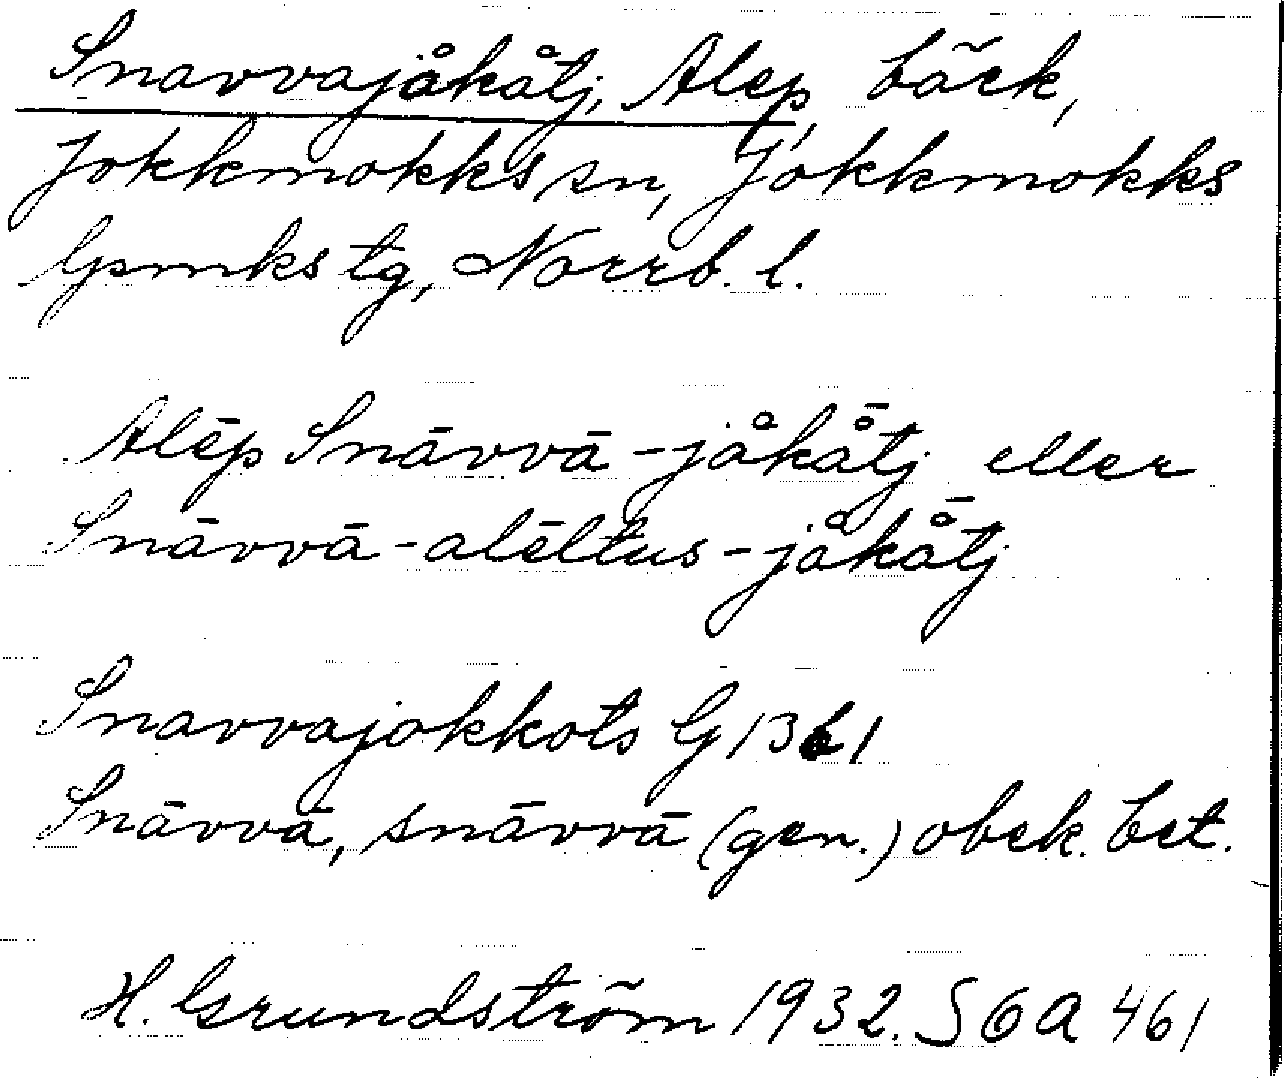 Snavvajåkåtj, Alep, bäck,
Jokkmokks sn, Jokkmokks
lpmks tg, Norrb. l.
Alēp Snāvvā-jåkå̄tj eller
Snāvvā-alēltus-jåkå̄tj
Snavvajokkots G 1361
Snāvvā, snāvvā (gen.) obek. bet.
H. Grundström 1932. SOA 461